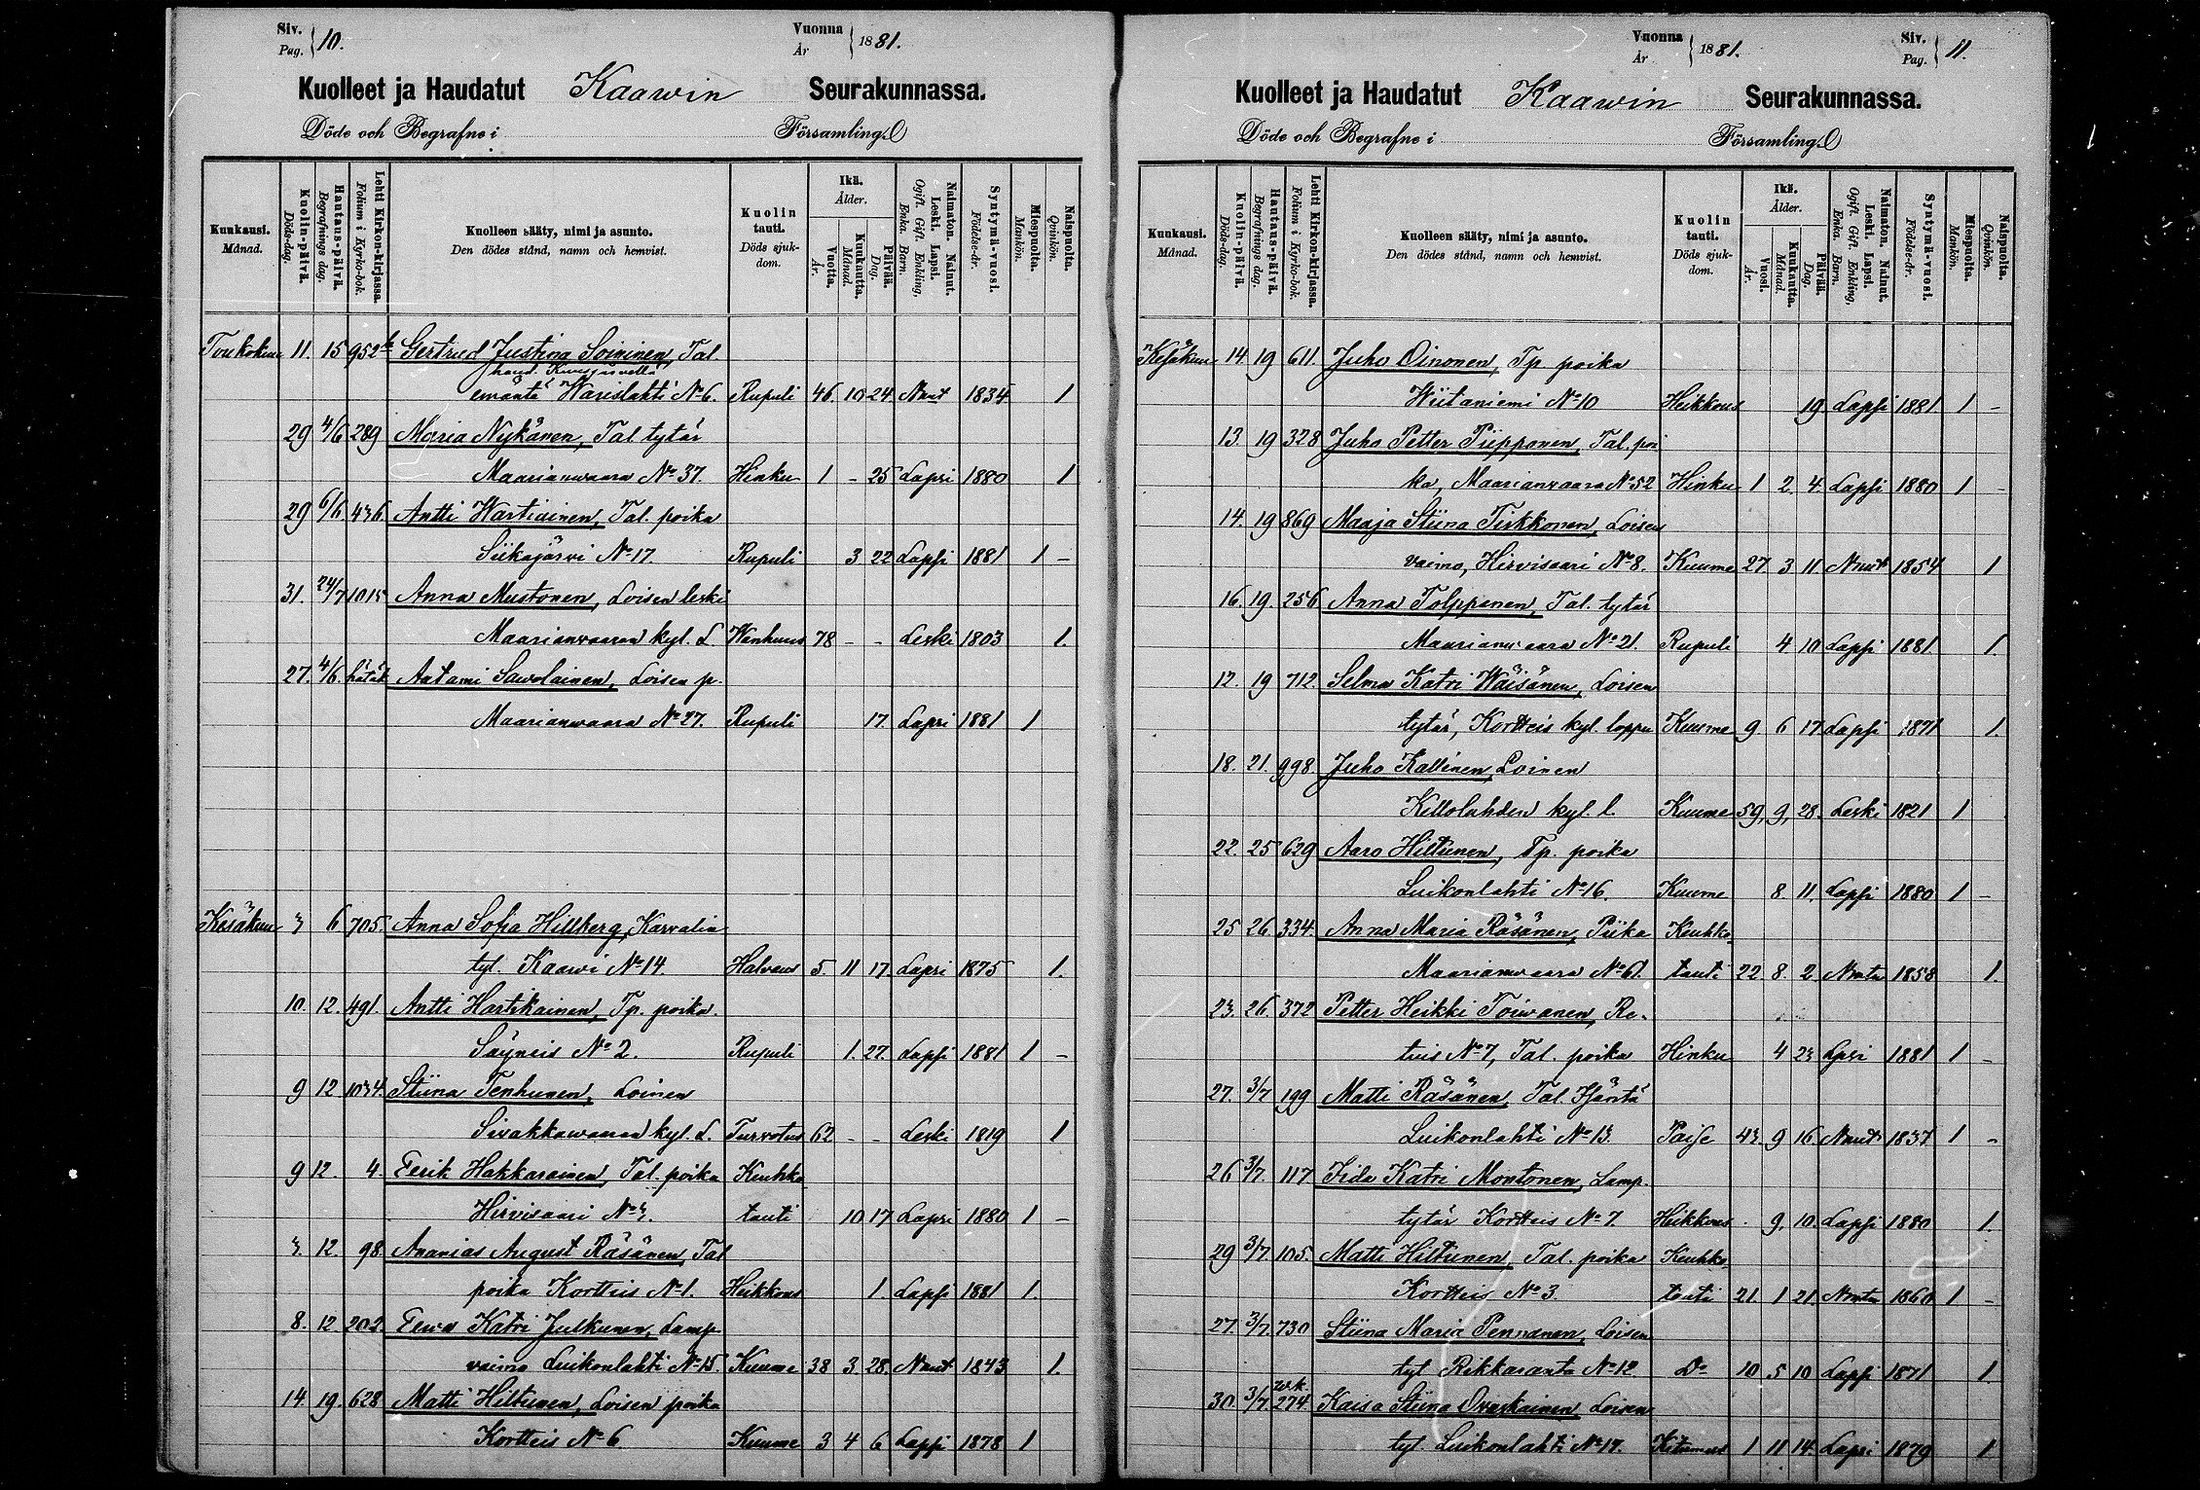 Siv. Pag. 10. Vuonna År 1881.
Kuolleet ja Haudatut Kaawin Seurakunnassa.
Döde och Begrafne i Församling.
Kuukausi. Månad. Kuolin-päivä. Döds-dag. Hautaus-päivä. Begrafnings dag. Lehti Kirkon-kirjassa. Folium i Kyrko-bok. Kuolleen sääty, nimi ja asunto. Den dödes stånd, namn och hemvist. Kuolin tauti. Döds sjukdom. Ikä. Ålder. Vuotta. År. Kuukautta. Månad. Päivää. Dag. Naimaton. Nainut. Leski. Lapsi. Ogift. Gift. Enkling, Enka. Barn. Syntymä-vuosi. Födelse-år. Miespuolta. Mankön. Naispuolta. Qvinkön.
Toukokuu 11. 15 952 Gertrud Justina Soininen, Tal.
haud. Kuusjärvellä
emäntä Warislahti No 6. Rupuli 46. 10 24. Nnut 1834 1
29 4/6 289 Maria Nykänen, Tal. tytär
Maarianwaara No 37. Hinku 1 - 25 Lapsi 1880 1
29 6/6 436 Antti Wartiainen, Tal. poika
Siikajärvi No 17. Rupuli 3 22 Lapsi 1881 1 -
31. 24/7 1015 Anna Mustonen, Loisen leski
Maarianwaaran kyl. L. Wanhuus 78 - - Leski 1803 1.
27. 4/6. hätäk Aatami Sawolainen, Loisen p.
Maarianwaara No 27. Rupuli 17. Lapsi 1881 1
Kesäkuu 3 6 705. Anna Sofia Hillberg, Karvalin
tyt. Kaawi No 14. Halvaus 5. 11 17. Lapsi 1875 1.
10. 12. 491. Antti Hartikainen, Tp. poika.
Säyneis No 2. Rupuli 1. 27. Lapsi 1881 1 -
9 12 1034. Stiina Tenhunen, Loinen
Sivakkawaaran kyl. L. Turvotus 62 - - Leski 1819 1
9 12. 4. Eerik Hakkarainen, Tal. poika Keuhko
Hirvisaari No 3. tauti 10 17 Lapsi 1880 1 -
3. 12. 98 Ananias August Räsänen, Tal
poika Kortteis No 1. Heikkous 1. Lapsi 1881 1.
8. 12 202. Eewa Katri Julkunen, Lamp.
vaimo Luikonlahti No 15. Kuume 38 3 28. Nnut 1843 1.
14. 19. 628 Matti Hiltunen, Loisen poika
Kortteis No 6 Kuume 3 4 6 Lapsi 1878 1
Vuonna År 1881. Siv. Pag. 11.
Kuolleet ja Haudatut Kaawin Seurakunnassa.
Döde och Begrafne i Församling.
Kuukausi. Månad. Kuolin-päivä. Döds-dag. Hautaus-päivä. Begrafnings dag. Lehti Kirkon-kirjassa. Folium i Kyrko-bok. Kuolleen sääty, nimi ja asunto. Den dödes stånd, namn och hemvist. Kuolin tauti. Döds sjukdom. Ikä. Ålder. Vuosi. År. Kuukautta. Månad. Päivää. Dag. Naimaton. Nainut. Leski. Lapsi. Ogift. Gift. Enkling, Enka. Barn. Syntymä-vuosi. Födelse-år. Miespuolta. Mankön. Naispuolta. Qvinkön.
Kesäkuu 14. 19 611 Juho Oinonen, Tp. poika
Wiitaniemi No 10 Heikkous 19 Lapsi 1881 1 -
13. 19 328 Juho Petter Piipponen, Tal. poi
ka, Maarianwaara No 52 Hinku 1 2 4. Lapsi 1880 1 -
14. 19 869 Maaja Stiina Tirkkonen, Loisen
vaimo, Hirvisaari No 8. Kuume 27. 3 11 Nnut 1854 1
16. 19. 256 Anna Tolppanen, Tal. tytär
Maarianwaara No 21. Rupuli 4 10 Lapsi 1881. 1.
12. 19 712. Selma Katri Wäisänen, Loisen
tytär, Kortteis kyl. loppu Kuume 9. 6 17 Lapsi 1871 1.
18. 21. 998. Juho Kallinen, Loinen
Killolahden kyl. l. Kuume 59. 9. 28. Leski 1821 1
22. 25 629 Aaro Hiltunen, Tp. poika
Luikonlahti No 16. Kuume 8. 11. Lapsi 1880 1 -
25 26 334. Anna Maria Räsänen, Piika Keuhko
Maarianwaara No 61. tauti 22. 8. 2. Nmtn 1858 1.
23. 26. 372 Petter Heikki Toiwanen, Re-
tuis No 7, Tal. poika Hinku 4 23 Lpsi 1881 1 -
27. 3/7 199 Matti Räsänen, Tal. Isäntä
Luikonlahti No 13. Paise 43. 9 16 Nnut 1837 1 -
26 3/7. 117 Iida Katri Montonen, Lamp.
tytär Kortteis No 7. Heikkous 9. 10. Lapsi 1880 1.
29 3/7. 105. Matti Hiltunen, Tal. poika Keuhko
Kortteis No 3. tauti 21. 1 21. Nmtn 1860 1 -
27. 3/7. 730 Stiina Maria Pennanen, Loisen
tyt Rikkaranta No 12 Do 10 5 10 Lapsi 1871 1
30. 3/7. 274 Kaisa Stiina Ovaskainen Loisen
tyt. Luikonlahti No 17. Kitumus 1 11 14. Lapsi 1879 1